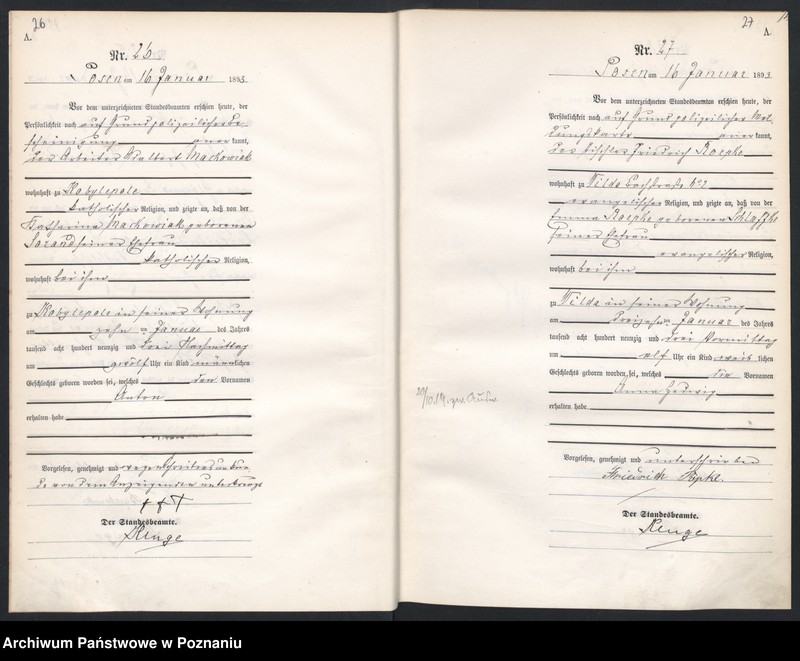 26
A.
Nr. 26
Posen am 16 Januar 1893.
Vor dem unterzeichneten Standesbeamten erschien heute, der
Persönlichkeit nach auf Grund polizeilicher Be-
scheinigung anerkannt,
der Arbeiter Adalbert Maćkowiak
wohnhaft zu Kobylepole
katholischer Religion, und zeigte an, daß von der
Katharina Maćkowiak geborenen
seiner Ehefrau
katholischer Religion,
wohnhaft bei ihm
zu Kobylepole in seiner Wohnung
am zehn ten Januar des Jahres
tausend acht hundert neunzig und drei Nachmittag
um zwölf Uhr ein Kind männlichen
Geschlechts geboren worden sei, welches den Vornamen
Anton
erhalten habe
Vorgelesen, genehmigt und wegen Schreibensunkun-
de von dem Anzeigenden unterkreuzt
+++
Der Standesbeamte.
27
A.
Nr. 27
Posen am 16 Januar 1893.
Vor dem unterzeichneten Standesbeamten erschien heute, der
Persönlichkeit nach auf Grund polizeilicher Mel-
dungskarte anerkannt,
der Tischler Friedrich Roepke
wohnhaft zu Wilda
evangelischer Religion, und zeigte an, daß von der
Emma Roepke geborenen
seiner Ehefrau
evangelischer Religion,
wohnhaft bei ihm
zu Wilda in seiner Wohnung
am dreizehn ten Januar des Jahres
tausend acht hundert neunzig und drei Vormittag
um elf Uhr ein Kind weib lichen
Geschlechts geboren worden sei, welches die Vornamen
Anna Hedwig
erhalten habe
Vorgelesen, genehmigt und unterschrieben
Friedrich Röpke.
Der Standesbeamte.
Archiwum Państwowe w Poznaniu